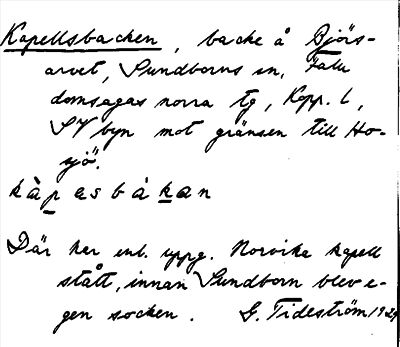 Kapellsbacken, backe å Björs-
arvet, Sundborns sn, Falu
domsagas norra tg, Kopp. l,
SV byn mot gränsen till Ho-
sjö.
kàpasbàkan
Där har enl. uppg. Norvika kapell
stått, innan Sundborn blev e-
gen socken. G. Tideström 1929